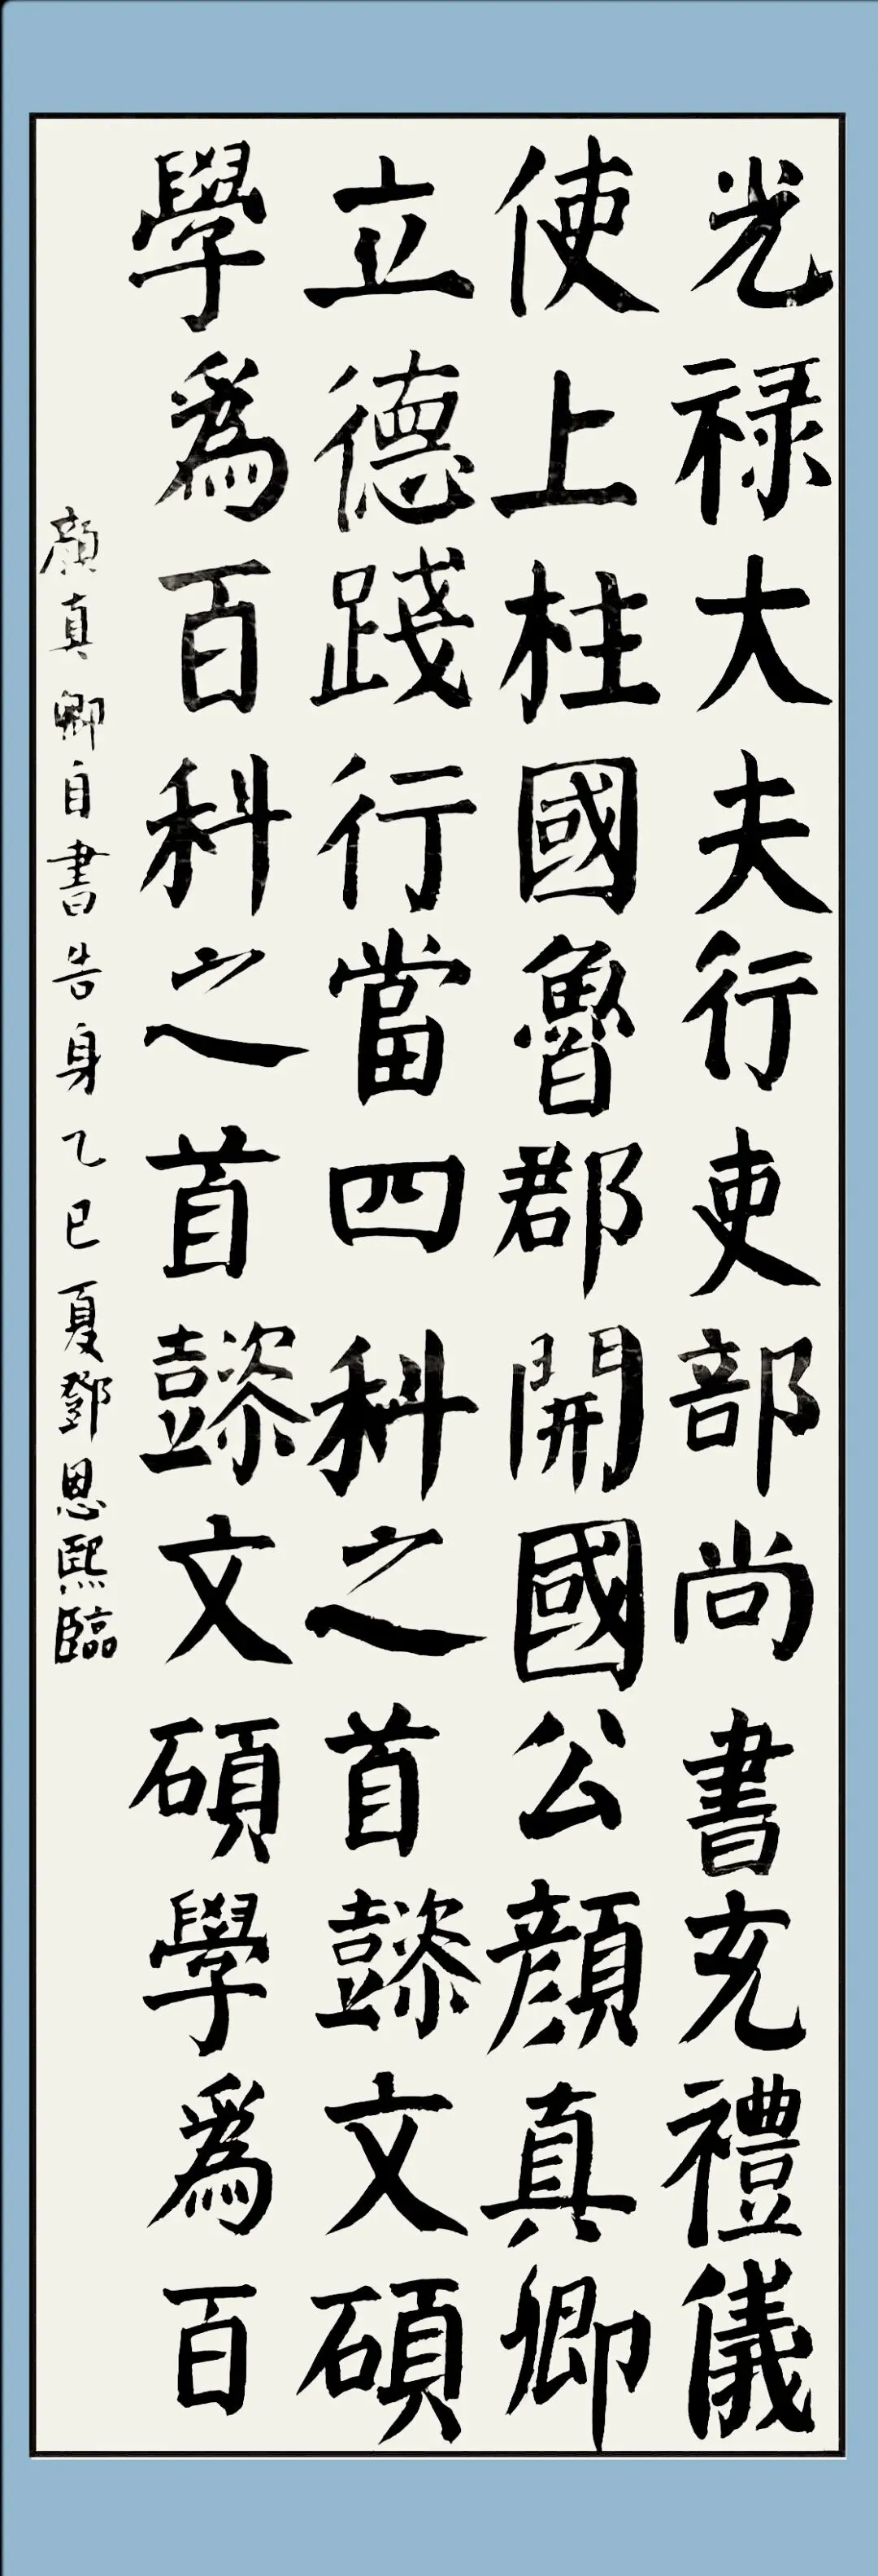 光禄大夫行吏部尚書充禮儀
使上柱國魯郡開國公顔真卿
立德踐行當四科之首懿文碩
學爲百科之首懿文碩學爲百
顔真卿自書告身乙巳夏鄧恩熙臨